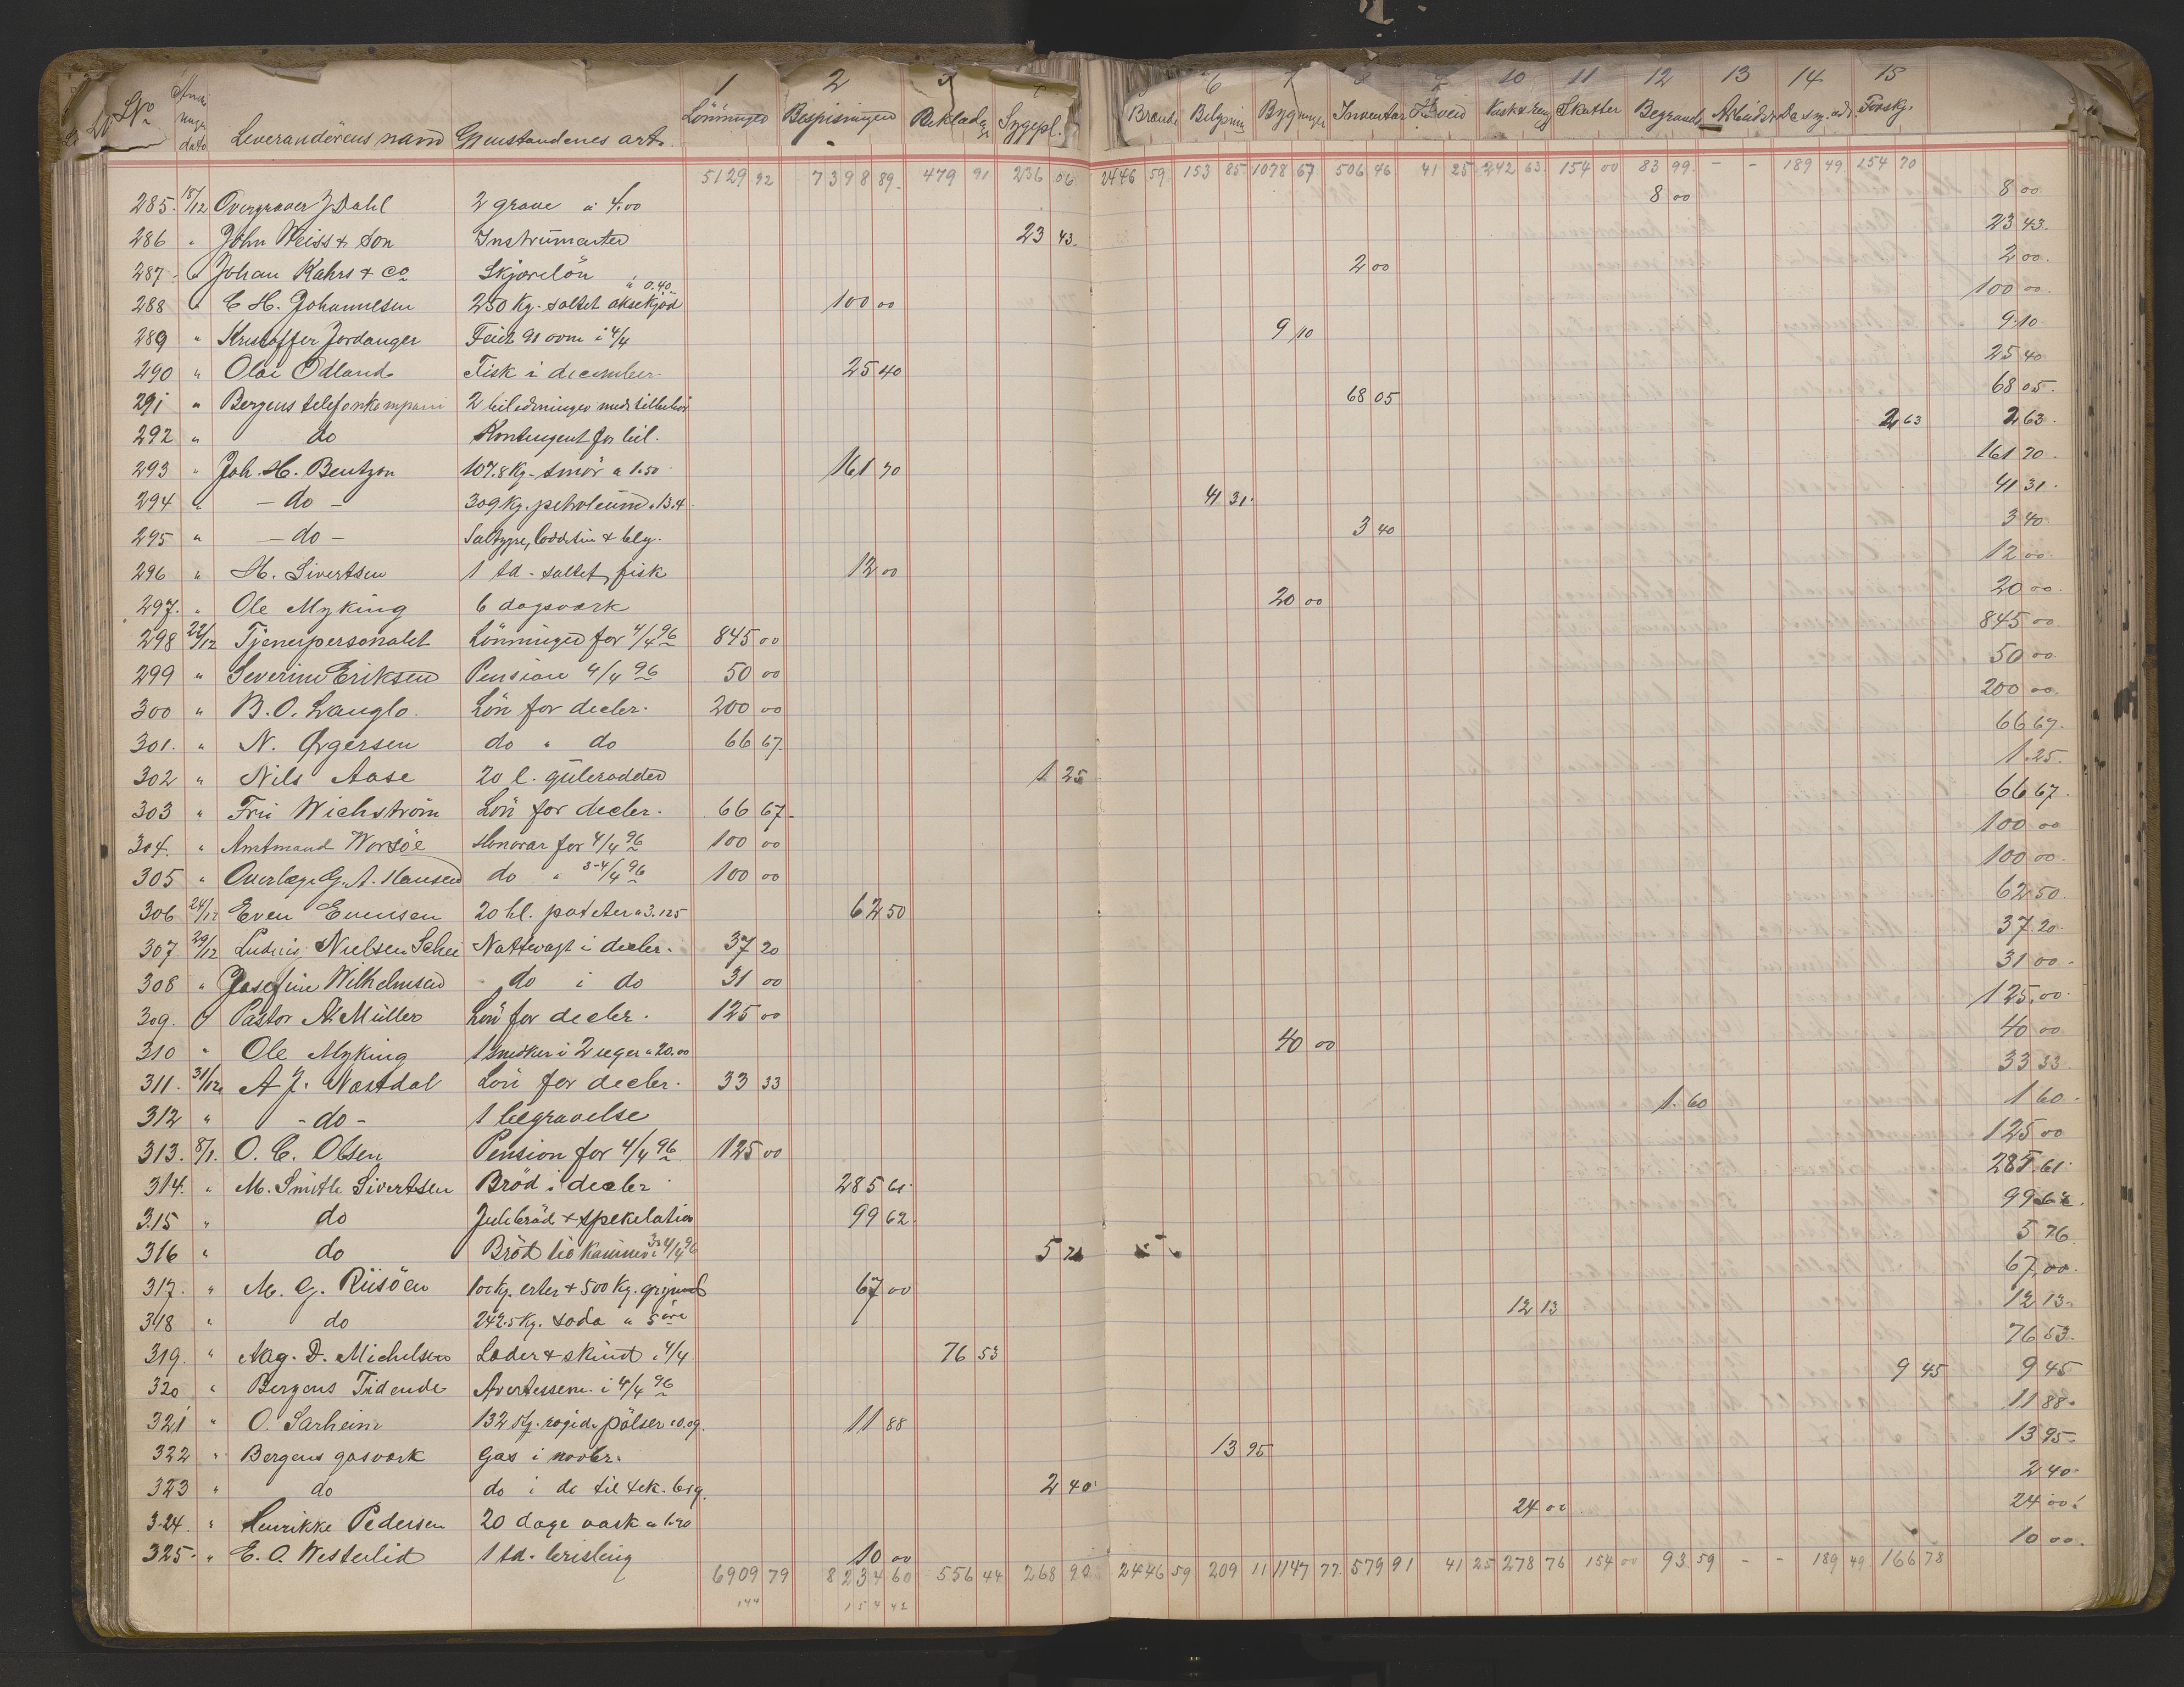 1 2 3 6 7 8 9 10 11 12 13 14 15
No dato Leverandörens navn Gjenstandenes art. Lönninger Bespisningen Beklædn. Sygepl. Brænde Belysning Bygninger Inventar Skatter Begravels. Forskj.
5129 92 7398 89 479 91 236 06 2446 59 153 85 1078 67 506 46 41 25 242 63 154 00 83 99 - - 189 49 154 70
285. 18/12 Overgraver J Dahl 2 grave a 4.00 8 00 8 00
286 " John Weiss & Son Instrumenter 23 43 23 43
287 " Johan Kahrs & Co Skjærelön 2 00 2 00
288 " C H. Johannesen 250 Kg. saltet oksekjöd a 0.40 100 00 100 00
289 " Kristoffer Jordanger 4/4 9 10 9 10
290 " Olai Odland Fisk i december 25 40 25 40
291 " Bergens telefonkompani 2 biledninger med tilbehör 68 05 68 05
292 " do Kontingent for bil. 2 63 2 63
293 " Joh. H. Bentzon 107.8 Kg. smör a 1.50 161 70 161 70
294 " - do - 309 Kg. petroleum a 13.4 41 31 41 31
295 " - do - & bly. 3 40 3 40
296 " H. Sivertsen 1 td. saltet fisk 12 00 12 00
297. " Ole Myking 6 dagsværk 20 00 20 00
298 22/12 Tjenerpersonalet Lönninger for 4/4 96 845 00 845 00
299 " Severine Eriksen Pension 4/4 96 50 00 50 00
300 " B. O. Langlo Lön for decbr. 200 00 200 00
301. " N. Ørgersen do " do 66 67 66 67
302 " Nils Aase 20 l. gulerödder 1 25 1.25
303 " Fru Wichström Lön for decbr. 66 67 66 67
304. " Amtmand Worsöe Honorar for 4/4 96 100 00 100 00
305 " Overlæge G. A. Hansen do " 3-4/4 96 100 00 100 00
306 24/12 Even Evensen 20 hl. poteter a 3.125 62 50 62 50
307 29/12 Ludvig Nielsen Schei Nattevagt i decbr. 37 20 37 20
308 " Josefine Wilhelmsen do i do 31 00 31 00
309. " Pastor A. Müller Lön for decbr. 125 00 125.00
310 " Ole Myking 1 snekker i 2 uger a 20.00 40 00 40 00
311. 31/12 A J. Nastdal Lön for decbr. 33 33 33 33
312 " - do - 1 begravelse 1. 60 1 60
313. 8/1. O. C. Olsen Pension for 4/4 96 125 00 125 00
314. " M. Smith Sivertsen Bröd i decbr 285 61 285 61
315 " do Julebröd & spekulation 99 62 99 62
316 " do Bröd til 3-4/4 96 5 76 5 76
317. " M. G. Riisöen 100 Kg. erter & 500 Kg. gryn 67 00 67.00
318 " do 242.5 Kg. soda a 5 öre 12 13 12 13
319. " Aag. D. Michelsen Læder & skind i 4/4 76 53 76 53
320 " Bergens Tidende Avertissem. i 4/4 96 9 45 9 45
321 " O. Sarheim 132 pölser a 0.09. 11 88 11 88
322 " Bergens gasværk Gas i novbr. 13 95 13 95
323 " do do i do til 2 40 2 40
324. " Henrikke Pedersen 20 dage vask a 1.20 24 00 24 00
325. " E. O. Westerlid 1 td. brisling 10 00 10 00
6909 79 8234 60 556 44 268 90 2446 59 209 11 1147 77 579 91 41 25 278 76 154 00 93 59 - - 189 49 166 78
144 154 42